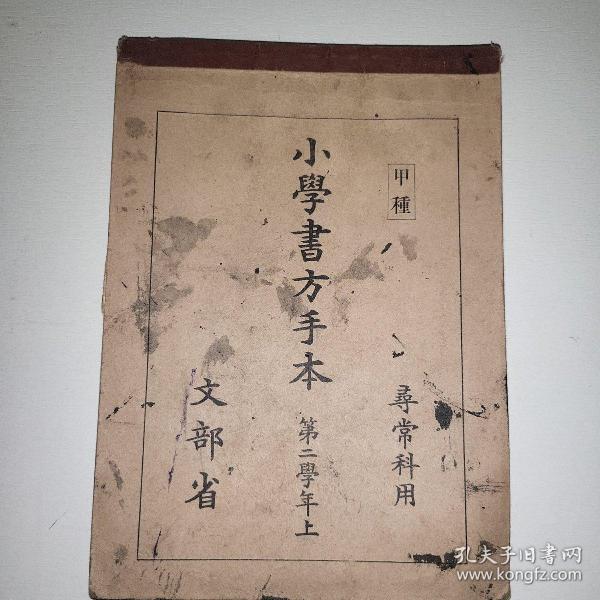 甲種
尋常科用
小學書方手本 第二學年上
文部省
孔夫子旧书网
www.kongfz.com